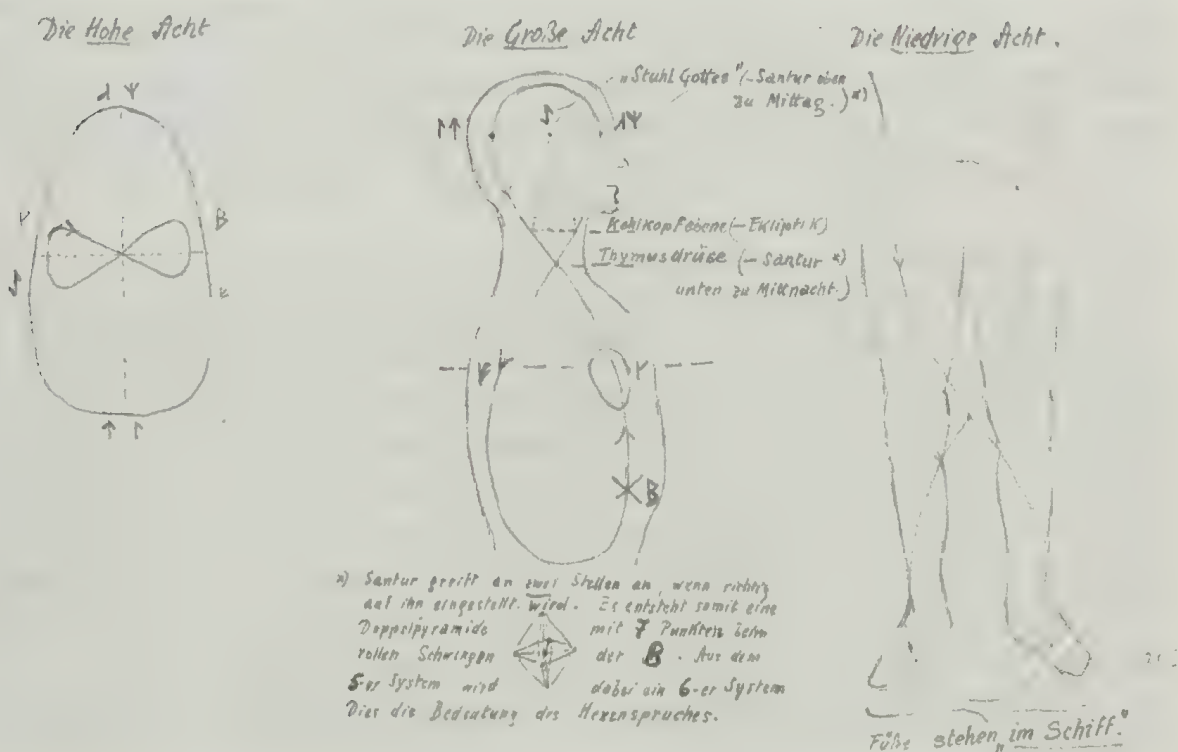 Die Hohe Acht
Die Große Acht
Die Niedrige Acht.
„Stuhl Gottes" (-Santur oben
zu Mittag.) *)
Kehlkopfebene (-Ekliptik)
Thymusdrüse (-Santur *)
unten zu Mitnacht.)
B
B
*) Santur greift an zwei Stellen an, wenn richtig
auf ihn eingestellt wird. Es entsteht somit eine
Doppelpyramide mit 7 Punkten beim
vollen Schwingen der B. Aus dem
5-er System wird dabei ein 6-er System
Dies die Bedeutung des Hexenspruches.
Füße stehen „im Schiff."